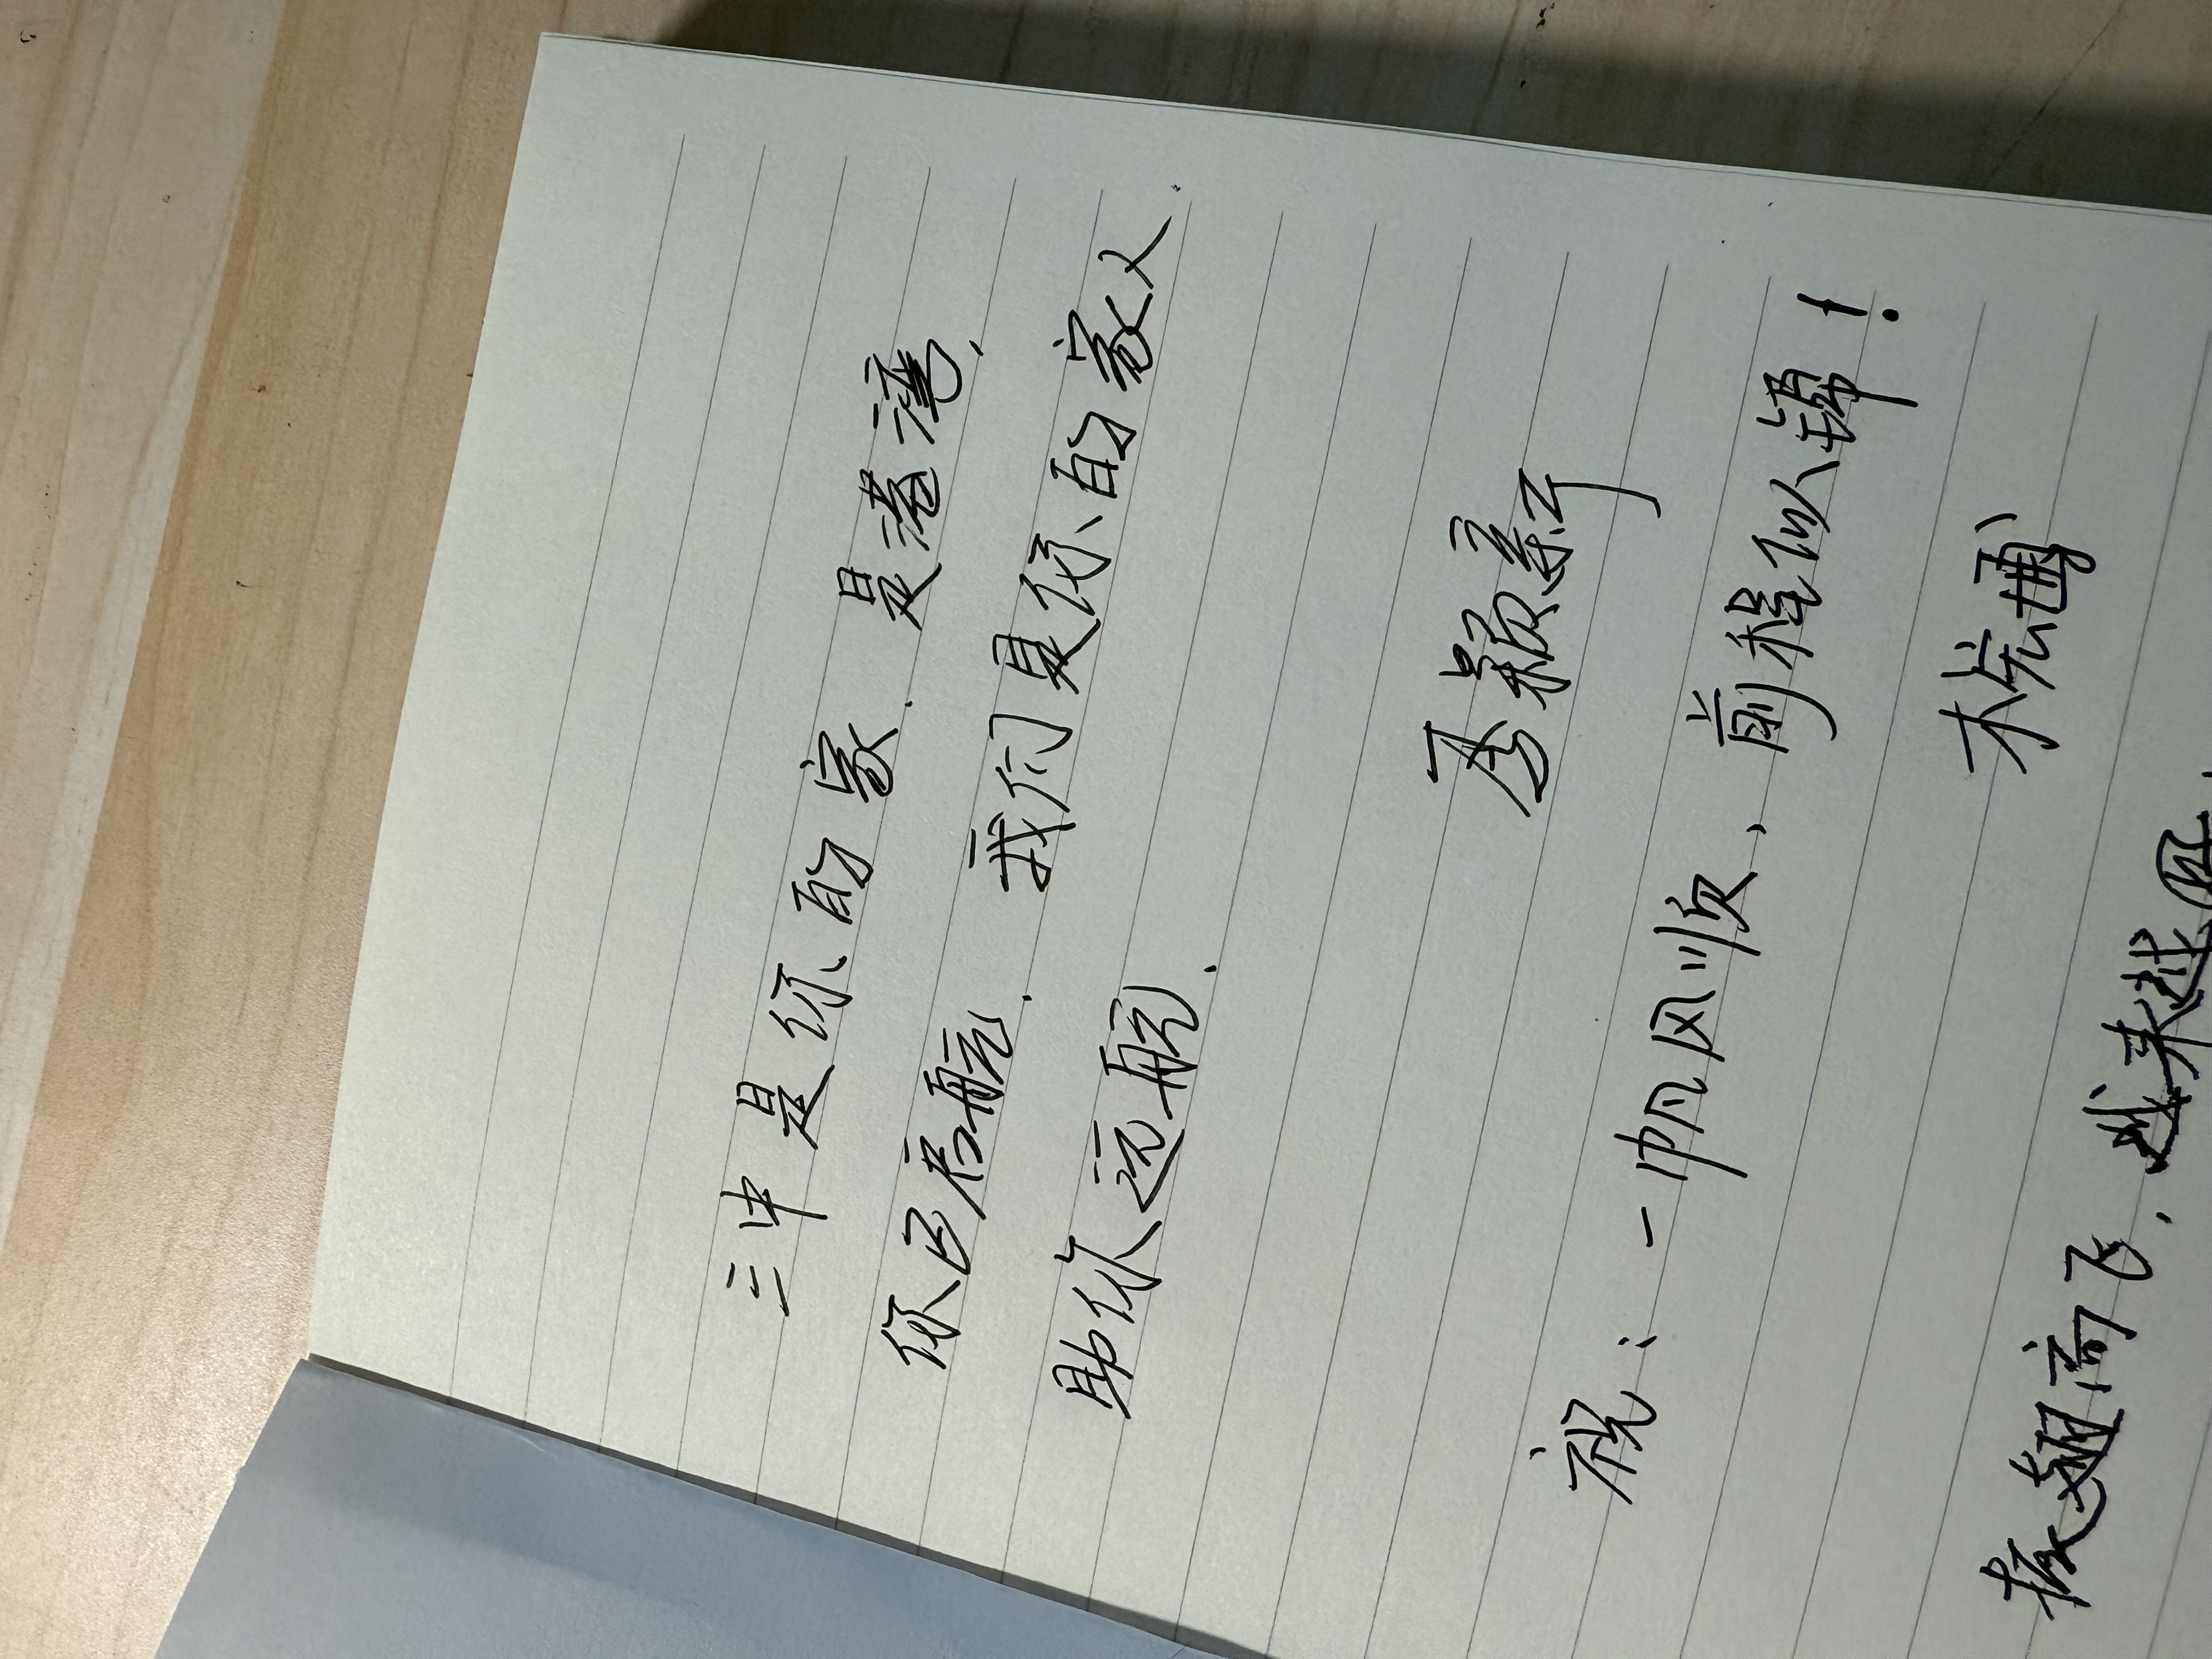 三中是你的家.是港湾.
你已启航.我们是你的家人.
助你远航.
颖
祝:一帆风顺、前程似锦!
宏博
振翅高飞.越来越